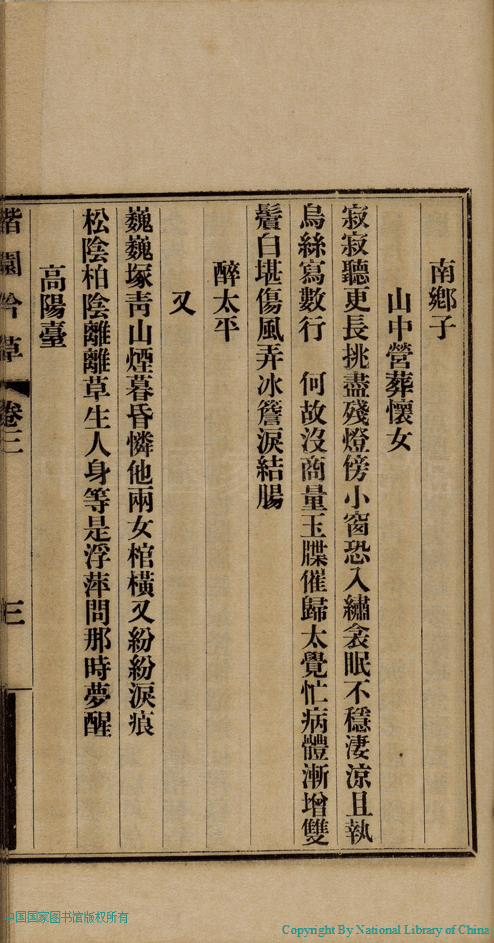 南鄉子
山中營葬懷女
寂寂聽更長挑盡殘燈傍小窗恐入繡衾眠不穩淒涼且執
烏絲寫數行　何故沒商量玉牒催歸太覺忙病體漸增雙
鬢白堪傷風弄冰簷淚結腸
醉太平
又
巍巍塚靑山煙暮昏憐他兩女棺橫又紛紛淚痕
松陰柏陰離離草生人身等是浮萍問那時夢醒
高陽臺
園吟草　卷三　三
中国国家图书馆版权所有
Copyright By National Library of China